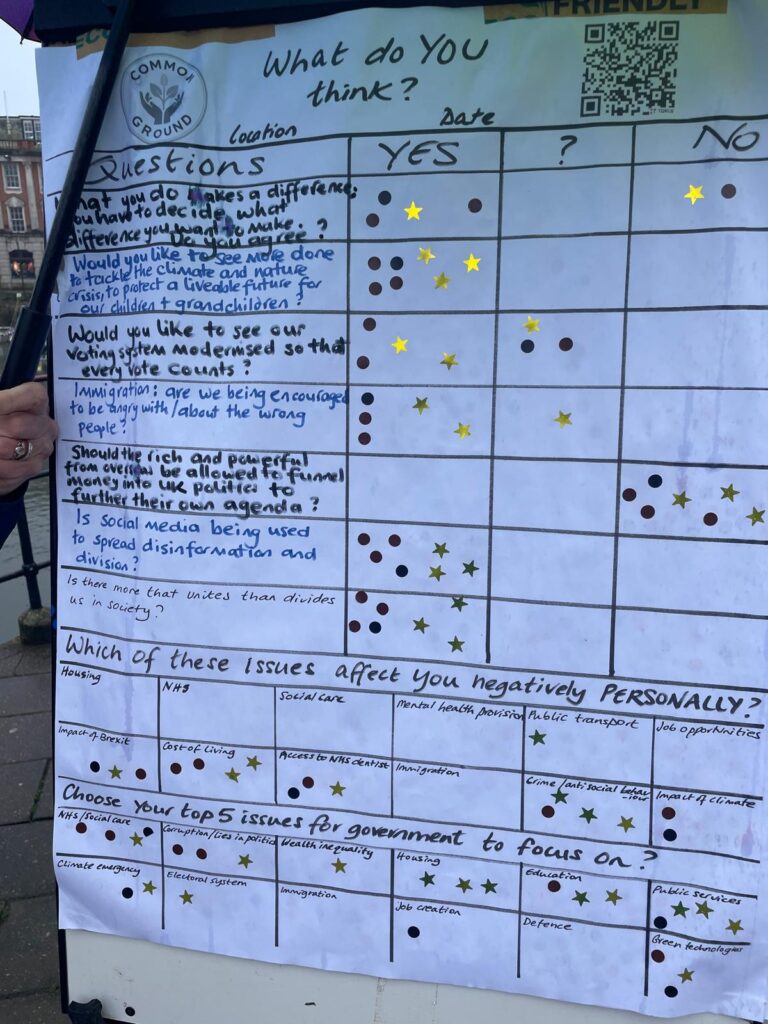 FRIENDLY
COMMON
GROUND
What do YOU
think?
Location
Date
Questions
YES
?
NO
What you do makes a difference;
you have to decide what
difference you want to make.
Do you agree?
Would you like to see more done
to tackle the climate and nature
crisis, to protect a liveable future for
our children + grandchildren?
Would you like to see our
voting system modernised so that
every vote counts?
Immigration: are we being encouraged
to be angry with/about the wrong
people?
Should the rich and powerful
from overseas be allowed to funnel
money into UK politics to
further their own agenda?
Is social media being used
to spread disinformation and
division?
Is there more that unites than divides
us in society?
Which of these issues affect you negatively PERSONALLY?
Housing
NHS
Social care
Mental health provision
Public transport
Job opportunities
Impact of Brexit
Cost of Living
Access to NHS dentist
Immigration
Crime/antisocial behav
-iour
Impact of climate
Choose your top 5 issues for government to focus on?
NHS/Social care
Corruption/lies in politics
Wealth inequality
Housing
Education
Public services
Climate emergency
Electoral system
Immigration
Job creation
Defence
Green technologies